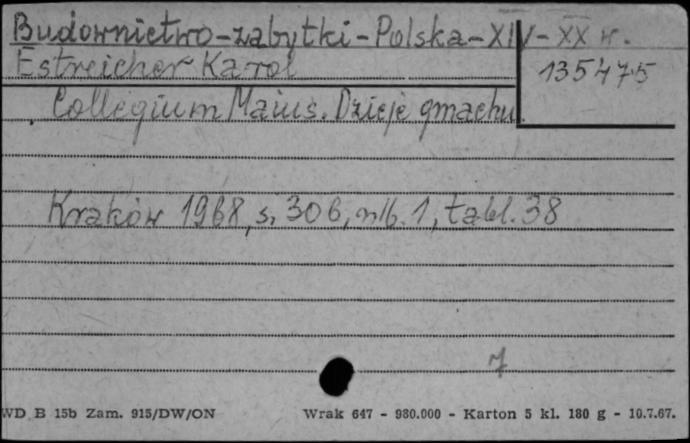 Budownictwo-zabytki-Polska-XIV-XX w.
Estreicher Karol
135475
Collegium Maius. Dzieje gmachu
Kraków 1968, s. 306, nlb. 1, tabl. 38
7
WD B 15b Zam. 915/DW/ON Wrak 647 - 980.000 - Karton 5 kl. 180 g - 10.7.67.